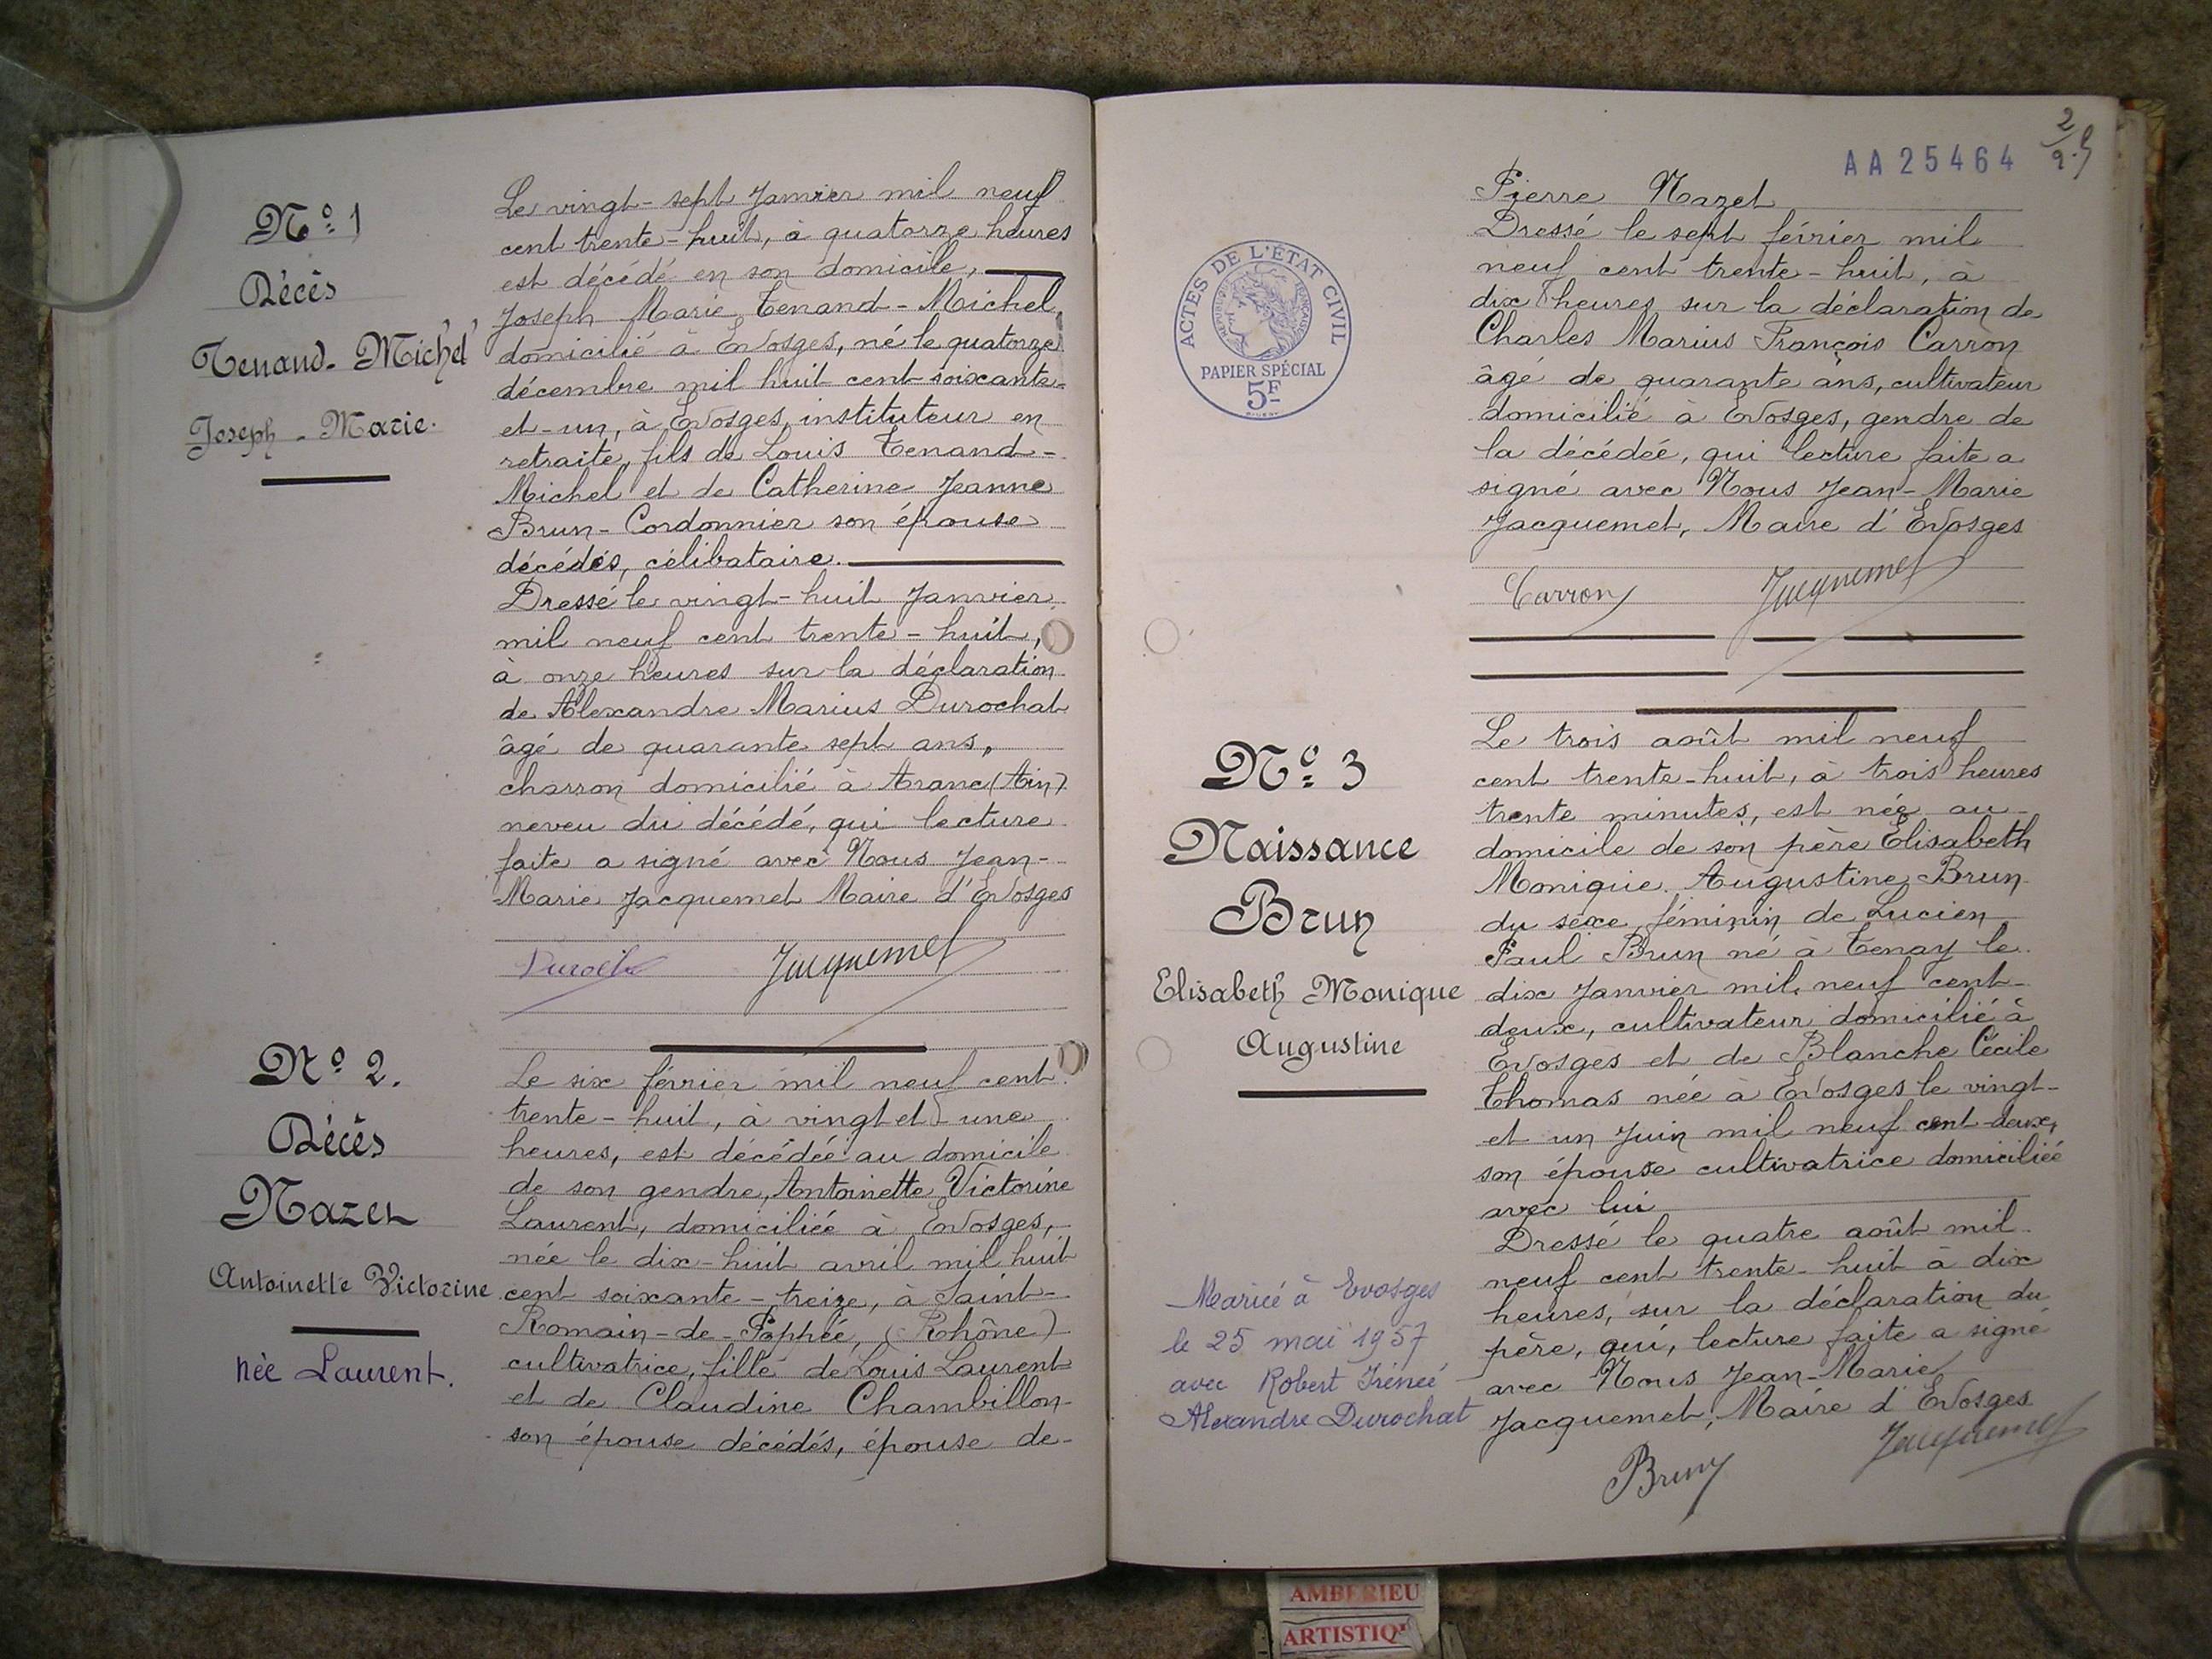 Nº 1
Décès
Tenand-Michel
Joseph-Marie.
Le vingt-sept Janvier mil neuf
cent trente-huit, à quatorze heures
est décédé en son domicile,
Joseph Marie Tenand-Michel,
domicilié à Evosges, né le quatorze
décembre mil huit cent soixante-
et-un, à Evosges, instituteur en
retraite, fils de Louis Tenand-
Michel et de Catherine Jeanne
Brun-Cordonnier son épouse
décédés, célibataire.
Dressé le vingt-huit Janvier
mil neuf cent trente-huit,
à onze heures sur la déclaration
de Alexandre Marius Durochat
âgé de quarante sept ans,
charron domicilié à Aranc (Ain)
neveu du décédé, qui lecture
faite a signé avec Nous Jean-
Marie Jacquemet Maire d'Evosges
Jacquemet
Nº 2.
Décès
Nazet
Antoinette Victorine
née Laurent.
Le six février mil neuf cent
trente-huit, à vingt et une
heures, est décédée au domicile
de son gendre, Antoinette Victorine
Laurent, domiciliée à Evosges,
née le dix-huit avril mil huit
cent soixante-treize, à Saint-
Romain-de-Poppée, (Rhône)
cultivatrice, fille de Louis Laurent
et de Claudine Chambillon
son épouse décédés, épouse de
AA25464
2
ACTES DE L'ÉTAT CIVIL
RÉPUBLIQUE FRANÇAISE
PAPIER SPÉCIAL
5F
Pierre Nazet
Dressé le sept février mil
neuf cent trente-huit, à
dix heures sur la déclaration de
Charles Marius François Carron
âgé de quarante ans, cultivateur
domicilié à Evosges, gendre de
la décédée, qui lecture faite a
signé avec Nous Jean-Marie
Jacquemet, Maire d'Evosges
Carron Jacquemet
Nº 3
Naissance
Brun
Elisabeth Monique
Augustine
Le trois août mil neuf
cent trente-huit, à trois heures
trente minutes, est née au
domicile de son père Elisabeth
Monique Augustine Brun
du sexe féminin de Lucien
Paul Brun né à Tenay le
dix Janvier mil neuf cent-
deux, cultivateur domicilié à
Evosges et de Blanche Cécile
Thomas née à Evosges le vingt-
et un Juin mil neuf cent-deux,
son épouse cultivatrice domiciliée
avec lui
Dressé le quatre août mil
neuf cent trente-huit à dix
heures, sur la déclaration du
père, qui, lecture faite a signé
avec Nous Jean-Marie
Jacquemet, Maire d'Evosges
Brun Jacquemet
Mariée à Evosges
le 25 mai 1957
avec Robert Irénée
Alexandre Durochat
AMBERIEU
ARTISTIQ